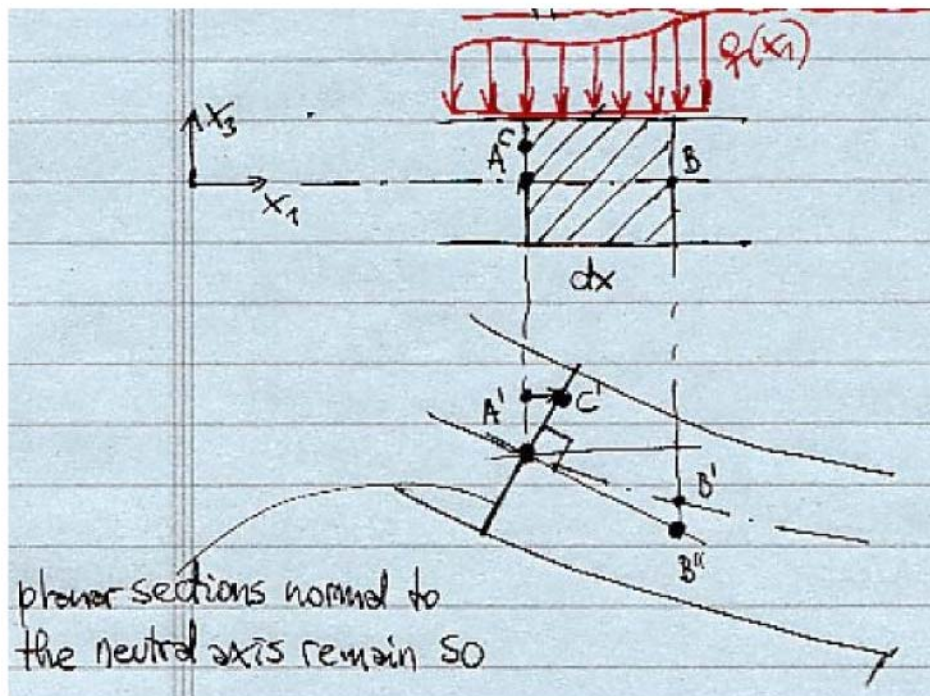 q(x₁)
X₃
C
A
B
X₁
dx
A'
C'
B'
B"
planar sections normal to
the neutral axis remain so